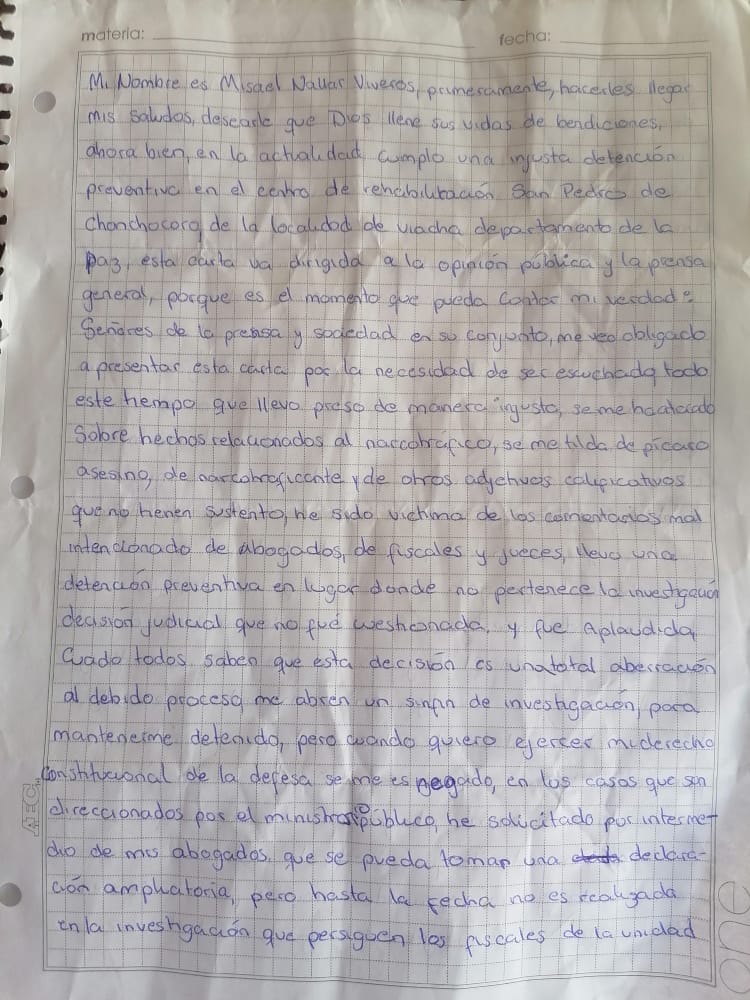 materia: fecha:
Mi Nombre es Misael Nallar Viveros, primeramente, hacerles llegar
mis saludos, desearle que Dios llene sus vidas de bendiciones,
ahora bien, en la actualidad cumplo una injusta detención
preventiva en el centro de rehabilitación San Pedro de
Chonchocoro, de la localidad de viacha departamento de la
paz, esta carta va dirigida a la opinión pública y la prensa
general, porque es el momento que pueda contar mi verdad:
Señores de la prensa y sociedad en su conjunto, me veo obligado
a presentar esta carta por la necesidad de ser escuchado, todo
este tiempo que llevo preso de manera injusto, se me ha atacado
Sobre hechos relacionados al narcotráfico, se me tilda de picaro
asesino, de narcotraficante y de otros adjetivos calificativos
que no tienen sustento, he sido victima de los comentarios mal
intencionado de abogados, de fiscales y jueces, llevo una
detención preventiva en lugar donde no pertenece la investigación
decisión judicial que no fué cuestionada, y fue aplaudida,
Cuado todos saben que esta decisión es una total aberración
al debido proceso, me abren un sinfin de investigación, para
mantenerme detenido, pero cuando quiero ejercer mi derecho
constitucional de la defesa se me es negado, en los casos que son
direccionados por el ministro público, he solicitado por interme-
dio de mis abogados, que se pueda tomar una declara-
ción ampliatoria, pero hasta la fecha no es realizada
en la investigación que persiguen los fiscales de la unidad
AFC.
one